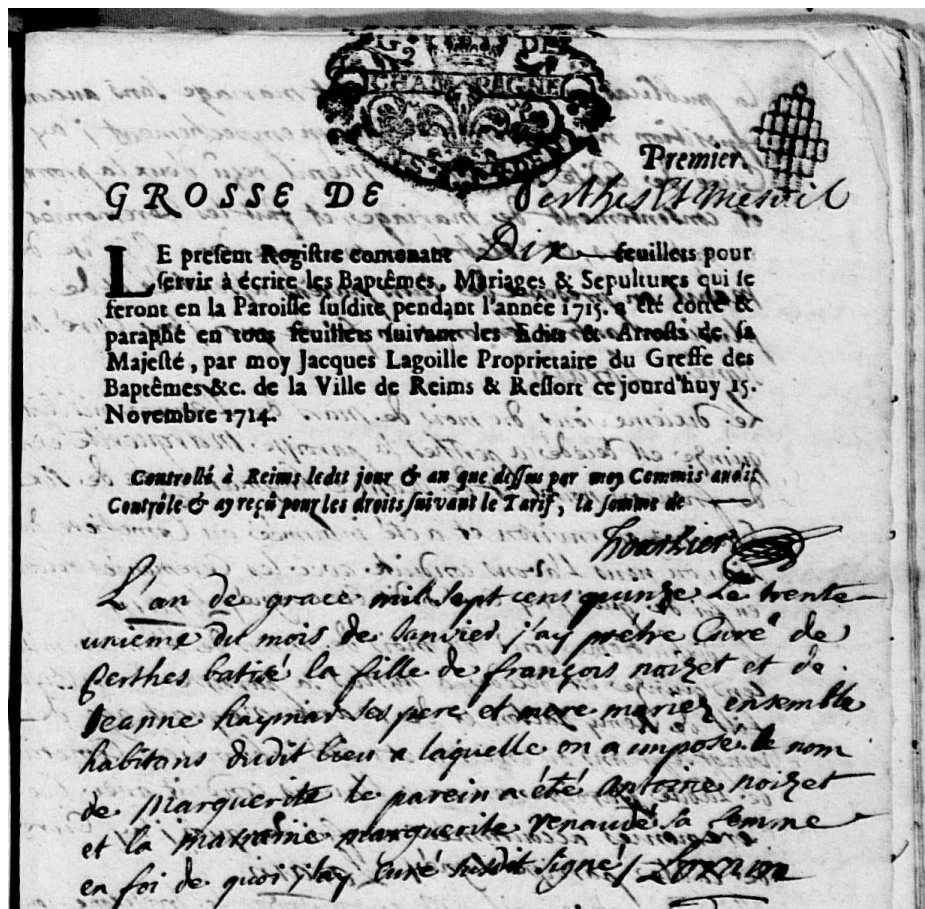 G. DE
CHAMPAGNE
Premier.
GROSSE DE Perthes et Mesnil
LE present Registre contenant Dix feuillets pour
servir à écrire les Baptêmes, Mariages & Sepultures qui se
feront en la Paroisse susdite pendant l'année 1715. a été cotté &
paraphé en tous feuillets suivant les Edits & Arrests de sa
Majesté, par moy Jacques Lagoille Proprietaire du Greffe des
Baptêmes &c. de la Ville de Reims & Ressort ce jourd'huy 15.
Novembre 1714.
Controllé à Reims ledit jour & an que dessus par moy Commis audit
Contrôle & ay reçû pour les droits suivant le Tarif, la somme de
L'an de grace mil sept cens quinze le trente
unieme du mois de Janvier j'ay prêtre Curé de
Perthes batisé la fille de françois noizet et de
Jeanne haymar ses pere et mere mariez ensemble
habitans dudit lieu a laquelle on a imposé le nom
de Marguerite le parein a été Antoine noizet
et la maraine marguerite renaudé sa femme
en foi de quoi j'ay Curé susdit signé